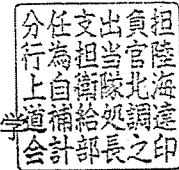 分任支出負担
行為担当官陸
上自衛隊北海
学
道補給処調達
会計部長之印